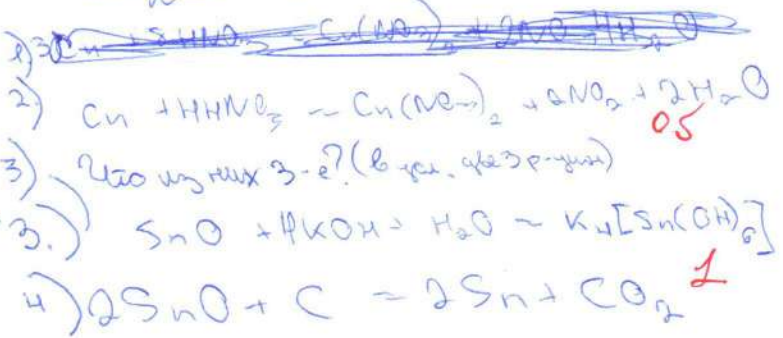 1) 3Cu + 8HNO3 = Cu(NO3)2 + 2NO + 4H2O
2) Cu + 4HNO3 = Cu(NO3)2 + 2NO2 + 2H2O
05
3) Что из них 3-е? (в усл. две 3 р-ции)
3.) SnO + 4KOH + H2O = K4[Sn(OH)6]
1
4) 2SnO + C = 2Sn + CO2